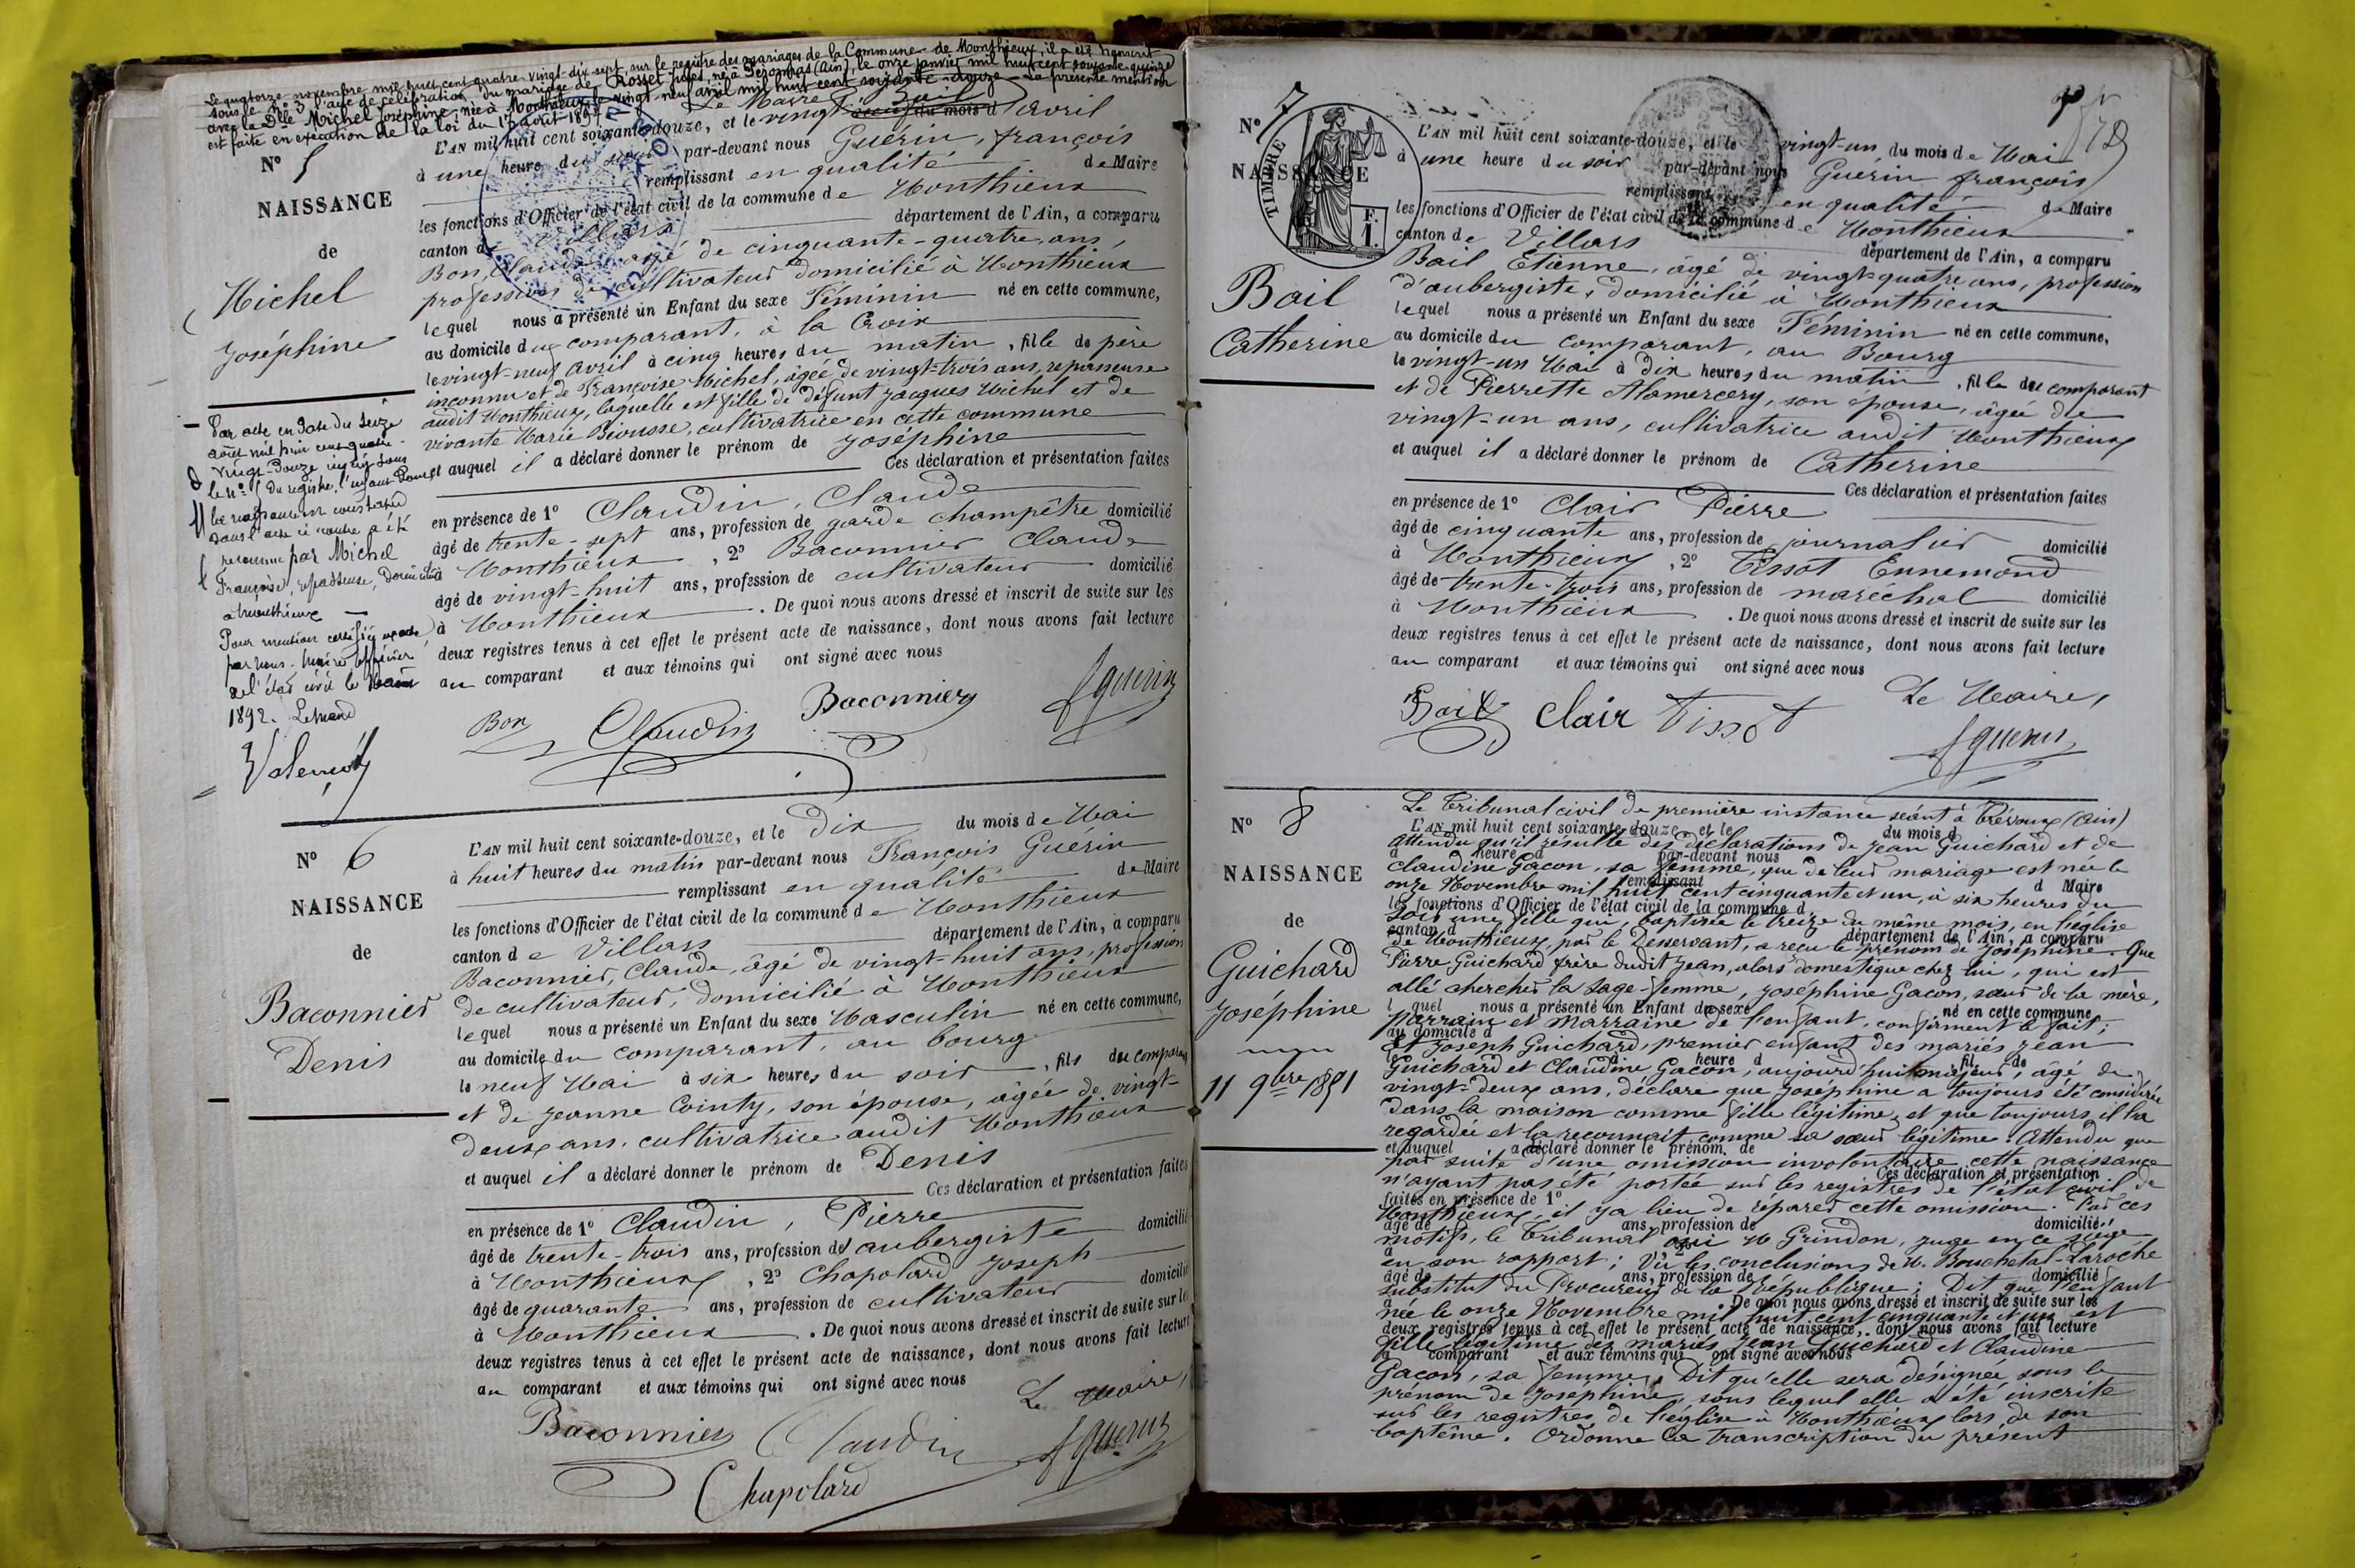 Le quatorze novembre mil huit cent quatre-vingt-dix-sept, sur le registre des mariages de la Commune de Monthieux, il a été transcrit
sous le N° 3 l'acte de célébration du mariage de Rosset Jules, né à Peronnas (Ain), le onze janvier mil huit cent soixante-quinze
avec la Dlle Michel Joséphine, née à Monthieux le vingt neuf avril mil huit cent soixante-douze. La présente mention
est faite en exécution de la loi du 17 août 1897
Le Maire
N° 5
NAISSANCE
de
Michel
Joséphine
L'AN mil huit cent soixante-douze, et le vingt neuf du mois d'avril
à une heure du soir par-devant nous Guérin, françois
remplissant en qualité de Maire
les fonctions d'Officier de l'état civil de la commune de Monthieux
canton de Villars département de l'Ain, a comparu
Bon, Claude âgé de cinquante-quatre ans,
profession de cultivateur domicilié à Monthieux
lequel nous a présenté un Enfant du sexe Féminin né en cette commune,
au domicile du comparant, à la Croix
le vingt-neuf Avril à cinq heures du matin, fille de père
inconnu et de Françoise Michel, âgée de vingt-trois ans, repasseuse
audit Monthieux, laquelle est fille de défunt Jacques Michel et de
vivante Marie Béousse, cultivatrice en cette commune
et auquel il a déclaré donner le prénom de Joséphine
Ces déclaration et présentation faites
en présence de 1° Claudin, Claude
âgé de trente-sept ans, profession de garde champêtre domicilié
à Monthieux, 2° Baconnier Claude
âgé de vingt-huit ans, profession de cultivateur domicilié
à Monthieux. De quoi nous avons dressé et inscrit de suite sur les
deux registres tenus à cet effet le présent acte de naissance, dont nous avons fait lecture
au comparant et aux témoins qui ont signé avec nous
Bon Claudin Baconnier fguerin
Par acte en date du seize
août mil huit cent quatre-
vingt-douze inscrit sous
le N° du registre, l'enfant dont
la naissance est constatée
dans l'acte ci contre a été
reconnue par Michel
Françoise, repasseuse, domiciliée
à Monthieux
Pour mention certifiée exacte
par nous Maire officier
de l'état civil le
1892. Le Maire
N° 6
NAISSANCE
de
Baconnier
Denis
L'AN mil huit cent soixante-douze, et le dix du mois de Mai
à huit heures du matin par-devant nous François Guérin
remplissant en qualité de Maire
les fonctions d'Officier de l'état civil de la commune de Monthieux
canton de Villars département de l'Ain, a comparu
Baconnier, Claude, âgé de vingt-huit ans, profession
de cultivateur, domicilié à Monthieux
lequel nous a présenté un Enfant du sexe Masculin né en cette commune,
au domicile du comparant, au bourg
le neuf Mai à six heures du soir, fils du comparant
et de Jeanne Cointy, son épouse, âgée de vingt-
deux ans, cultivatrice audit Monthieux
et auquel il a déclaré donner le prénom de Denis
Ces déclaration et présentation faites
en présence de 1° Claudin, Pierre
âgé de trente-trois ans, profession d'aubergiste domicilié
à Monthieux, 2° Chapolard Joseph
âgé de quarante ans, profession de cultivateur domicilié
à Monthieux. De quoi nous avons dressé et inscrit de suite sur les
deux registres tenus à cet effet le présent acte de naissance, dont nous avons fait lecture
au comparant et aux témoins qui ont signé avec nous
Le Maire,
Baconnier Claudin fguerin
Chapolard
N° 7
NAISSANCE
TIMBRE
F.
I.
Bail
Catherine
L'AN mil huit cent soixante-douze, et le vingt-un du mois de Mai
à une heure du soir par-devant nous Guérin françois
remplissant en qualité de Maire
les fonctions d'Officier de l'état civil de la commune de Monthieux
canton de Villars département de l'Ain, a comparu
Bail Etienne, âgé de vingt-quatre ans, profession
d'aubergiste, domicilié à Monthieux
lequel nous a présenté un Enfant du sexe Féminin né en cette commune,
au domicile du comparant, au Bourg
le vingt-un Mai à dix heures du matin, fille du comparant
et de Pierrette Alamercery, son épouse, âgée de
vingt-un ans, cultivatrice audit Monthieux
et auquel il a déclaré donner le prénom de Catherine
Ces déclaration et présentation faites
en présence de 1° Clair Pierre
âgé de cinquante ans, profession de journalier domicilié
à Monthieux, 2° Tissot Ennemond
âgé de trente-trois ans, profession de maréchal domicilié
à Monthieux. De quoi nous avons dressé et inscrit de suite sur les
deux registres tenus à cet effet le présent acte de naissance, dont nous avons fait lecture
au comparant et aux témoins qui ont signé avec nous
Le Maire,
Bail Clair Tissot fguerin
N° 8
NAISSANCE
de
Guichard
Joséphine
11 9bre 1851
Le Tribunal civil de première instance séant à Trévoux (Ain)
L'AN mil huit cent soixante-douze, et le du mois d
Attendu qu'il résulte des déclarations de Jean Guichard et de
à heure d par-devant nous
Claudine Gacon, sa femme, que de leur mariage est née le
remplissant
onze Novembre mil huit cent cinquante et un, à six heures du
d Maire
les fonctions d'Officier de l'état civil de la commune d
soir une fille qui, baptisée le treize du même mois, en l'église
canton d département de l'Ain, a comparu
de Monthieux, par le Desservant, a reçu le prénom de Joséphine. Que
Pierre Guichard frère dudit Jean, alors domestique chez lui, qui est
allé chercher la sage-femme, Joséphine Gacon, sœur de la mère,
l quel nous a présenté un Enfant du sexe né en cette commune
parrain et marraine de l'enfant, confirment le fait;
au domicile d
et Joseph Guichard, premier enfant des mariés Jean
le à heure d fil de
Guichard et Claudine Gacon, aujourd'hui majeur, âgé de
vingt-deux ans, déclare que Joséphine a toujours été considérée
dans la maison comme fille légitime, et que toujours il l'a
regardée et la reconnait comme sa sœur légitime. Attendu que
et auquel a déclaré donner le prénom de
par suite d'une omission involontaire cette naissance
Ces déclaration et présentation
n'ayant pas été portée sur les registres de l'état civil de
faites en présence de 1°
Monthieux, il y a lieu de réparer cette omission. Par ces
âgé de ans, profession de domicilié
motifs, le Tribunal ouï M Grindon, juge en ce siège
à 2°
en son rapport; Vu les conclusions de M. Bouchetal-Laroche
âgé de ans, profession de domicilié
substitut du Procureur de la République; Dit que l'enfant
à De quoi nous avons dressé et inscrit de suite sur les
née le onze Novembre mil huit cent cinquante et un est
deux registres tenus à cet effet le présent acte de naissance, dont nous avons fait lecture
fille légitime des mariés Jean Guichard et Claudine
comparant et aux témoins qui ont signé avec nous
Gacon, sa femme. Dit qu'elle sera désignée sous le
prénom de Joséphine, sous lequel elle a été inscrite
sur les registres de l'église à Monthieux lors de son
baptême. Ordonne la transcription du présent